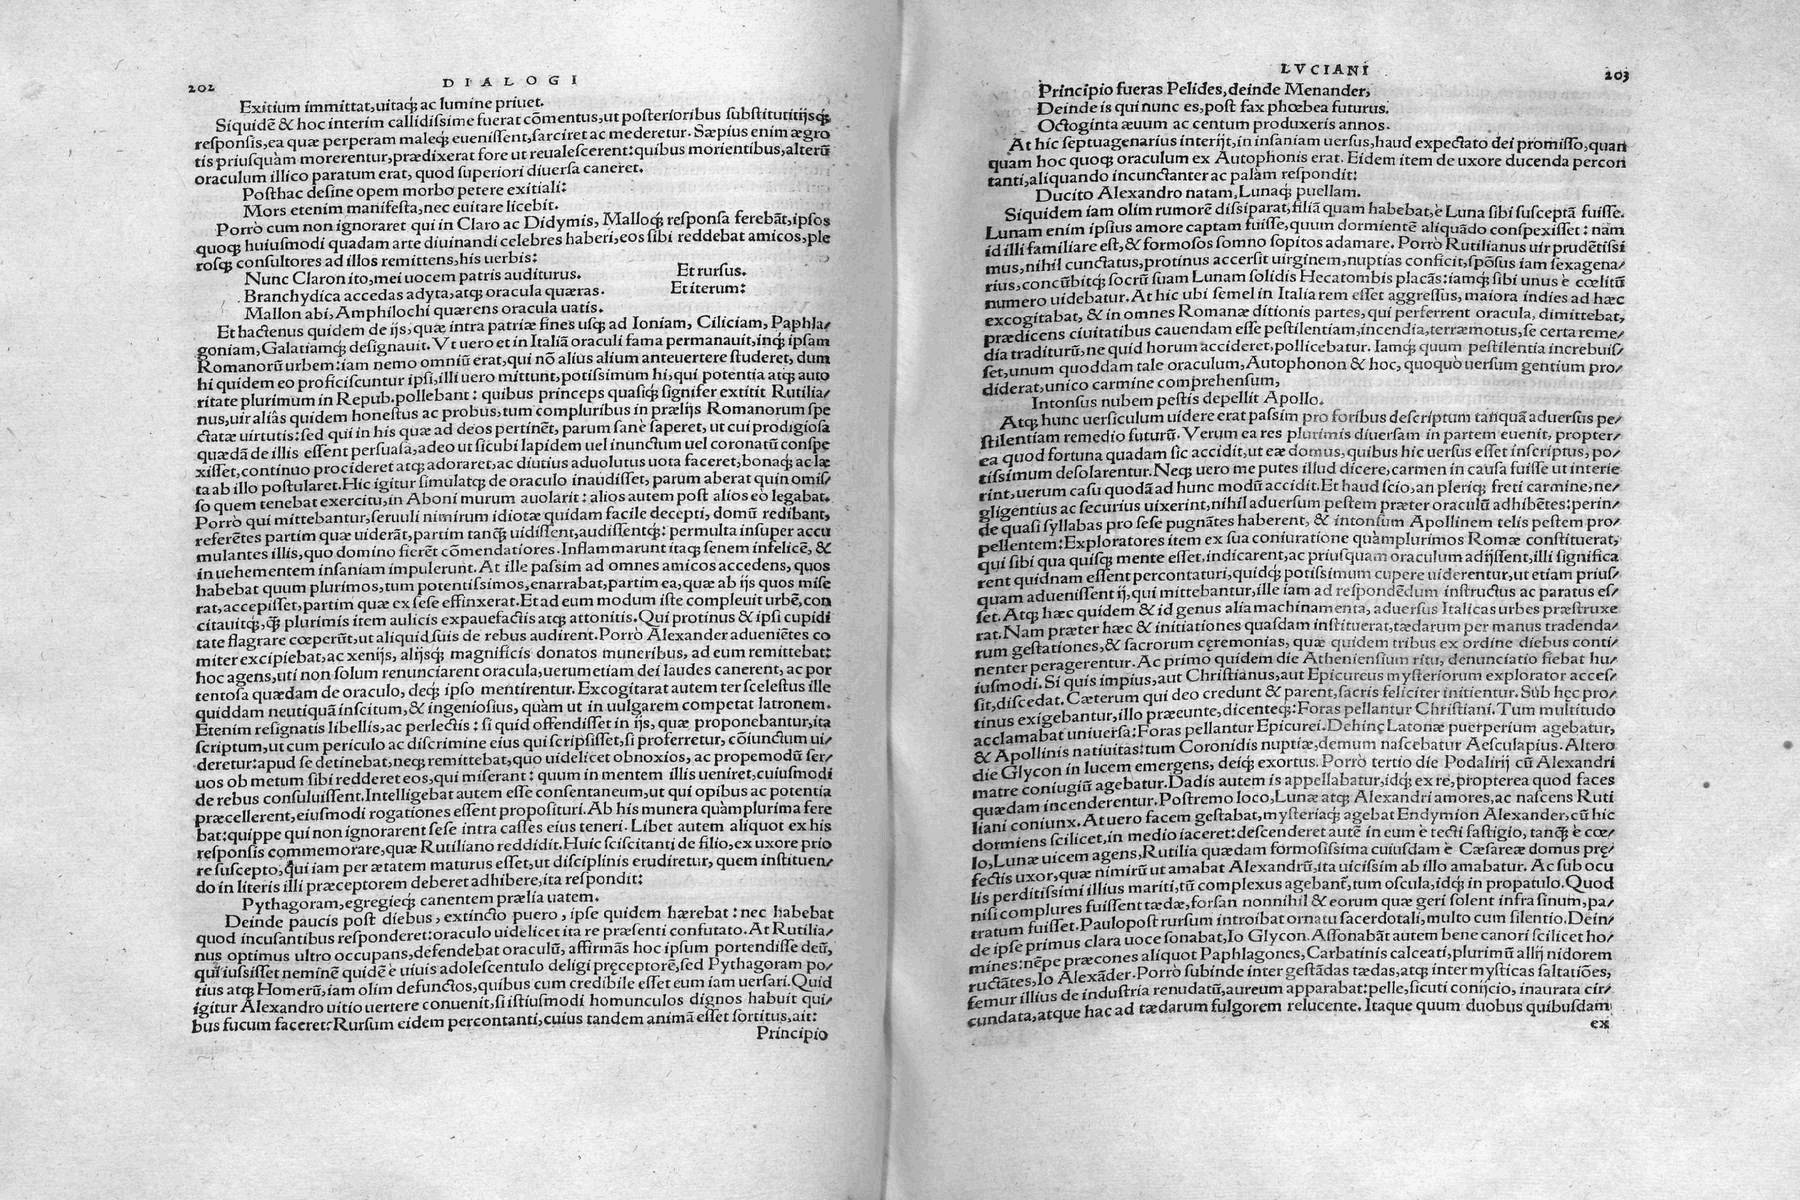 202
DIALOGI
Exitium immittat, uitaq; ac lumine priuet.
Siquidē & hoc interim callidissime fuerat cōmentus, ut posterioribus substitutitijsq;
responsis, ea quæ perperam maleq; euenissent, sarciret ac mederetur. Sæpius enim ægro
tis priusquàm morerentur, prædixerat fore ut reualescerent: quibus morientibus, alterū
oraculum illico paratum erat, quod superiori diuersa caneret.
Posthac desine opem morbo petere exitiali:
Mors etenim manifesta, nec euitare licebit.
Porrò cum non ignoraret qui in Claro ac Didymis, Malloq; responsa ferebāt, ipsos
quoq; huiusmodi quadam arte diuinandi celebres haberi, eos sibi reddebat amicos, ple
rosq; consultores ad illos remittens, his uerbis:
Nunc Claron ito, mei uocem patris auditurus. Et rursus.
Branchydica accedas adyta, atq; oracula quæras. Et iterum:
Mallon abi, Amphilochi quærens oracula uatis.
Et hactenus quidem de ijs, quæ intra patriæ fines usq; ad Ioniam, Ciliciam, Paphla/
goniam, Galatiamq; designauit. Vt uero et in Italiā oraculi fama permanauit, inq; ipsam
Romanorū urbem: iam nemo omniū erat, qui nō alius alium anteuertere studeret, dum
hi quidem eo proficiscuntur ipsi, illi uero mittunt, potissimum hi, qui potentia atq; auto
ritate plurimum in Repub. pollebant: quibus princeps quasiq; signifer extitit Rutilia/
nus, uir aliâs quidem honestus ac probus, tum compluribus in prælijs Romanorum spe
ctatæ uirtutis: sed qui in his quæ ad deos pertinēt, parum sanè saperet, ut cui prodigiosa
quædā de illis essent persuasa, adeo ut sicubi lapidem uel inunctum uel coronatū conspe
xisset, continuo procideret atq; adoraret, ac diutius aduolutus uota faceret, bonaq; ac læ
ta ab illo postularet. Hic igitur simulatq; de oraculo inaudisset, parum aberat quin omis/
so quem tenebat exercitu, in Aboni murum auolarit: alios autem post alios eò legabat.
Porrò qui mittebantur, seruuli nimirum idiotæ quidam facile decepti, domū redibant,
referētes partim quæ uiderāt, partim tanq̃ uidissent, audissentq;: permulta insuper accu
mulantes illis, quo domino fierēt cōmendatiores. Inflammarunt itaq; senem infelicē, &
in uehementem insaniam impulerunt. At ille passim ad omnes amicos accedens, quos
habebat quum plurimos, tum potentissimos, enarrabat, partim ea, quæ ab ijs quos mise
rat, accepisset, partim quæ ex sese effinxerat. Et ad eum modum iste compleuit urbē, con
citauitq;, q̃ plurimis item aulicis expauefactis atq; attonitis. Qui protinus & ipsi cupidi
tate flagrare cœperūt, ut aliquid suis de rebus audirent. Porrò Alexander adueniētes co
miter excipiebat, ac xenijs, alijsq; magnificis donatos muneribus, ad eum remittebat:
hoc agens, uti non solum renunciarent oracula, uerumetiam dei laudes canerent, ac por
tentosa quædam de oraculo, deq; ipso mentirentur. Excogitarat autem ter scelestus ille
quiddam neutiquā inscitum, & ingeniosius, quàm ut in uulgarem competat latronem.
Etenim resignatis libellis, ac perlectis: si quid offendisset in ijs, quæ proponebantur, ita
scriptum, ut cum periculo ac discrimine eius qui scripsisset, si proferretur, cōiunctum ui/
deretur: apud se detinebat, neq; remittebat, quo uidelicet obnoxios, ac propemodū ser/
uos ob metum sibi redderet eos, qui miserant: quum in mentem illis ueniret, cuiusmodi
de rebus consuluissent. Intelligebat autem esse consentaneum, ut qui opibus ac potentia
præcellerent, eiusmodi rogationes essent proposituri. Ab his munera quàmplurima fere
bat: quippe qui non ignorarent sese intra casses eius teneri. Libet autem aliquot ex his
responsis commemorare, quæ Rutiliano reddidit. Huic sciscitanti de filio, ex uxore prio
re suscepto, qui iam per ætatem maturus esset, ut disciplinis erudiretur, quem instituen/
do in literis illi præceptorem deberet adhibere, ita respondit:
Pythagoram, egregieq; canentem prælia uatem.
Deinde paucis post diebus, extincto puero, ipse quidem hærebat: nec habebat
quod incusantibus responderet: oraculo uidelicet ita re præsenti confutato. At Rutilia/
nus optimus ultro occupans, defendebat oraculū, affirmās hoc ipsum portendisse deū,
qui iussisset neminē quidē è uiuis adolescentulo deligi pręceptorē, sed Pythagoram po/
tius atq; Homerū, iam olim defunctos, quibus cum credibile esset eum iam uersari. Quid
igitur Alexandro uitio uertere conuenit, si istiusmodi homunculos dignos habuit qui/
bus fucum faceret? Rursum eidem percontanti, cuius tandem animā esset sortitus, ait:
Principio
LVCIANI
203
Principio fueras Pelides, deinde Menander,
Deinde is qui nunc es, post fax phœbea futurus.
Octoginta æuum ac centum produxeris annos.
At hic septuagenarius interijt, in insaniam uersus, haud expectato dei promisso, quan
quàm hoc quoq; oraculum ex Autophonis erat. Eidem item de uxore ducenda percon
tanti, aliquando incunctanter ac palàm respondit:
Ducito Alexandro natam, Lunaq; puellam.
Siquidem iam olim rumorē dissiparat, filiā quam habebat, è Luna sibi susceptā fuisse.
Lunam enim ipsius amore captam fuisse, quum dormientē aliquādo conspexisset: nam
id illi familiare est, & formosos somno sopitos adamare. Porrò Rutilianus uir prudētissi
mus, nihil cunctatus, protinus accersit uirginem, nuptias conficit, spōsus iam sexagena/
rius, concūbitq; socrū suam Lunam solidis Hecatombis placās: iamq; sibi unus è cœlitū
numero uidebatur. At hic ubi semel in Italia rem esset aggressus, maiora indies ad hæc
excogitabat, & in omnes Romanæ ditionis partes, qui perferrent oracula, dimittebat,
prædicens ciuitatibus cauendam esse pestilentiam, incendia, terræmotus, se certa reme/
dia traditurū, ne quid horum accideret, pollicebatur. Iamq; quum pestilentia increbuis/
set, unum quoddam tale oraculum, Autophonon & hoc, quoquò uersum gentium pro/
diderat, unico carmine comprehensum,
Intonsus nubem pestis depellit Apollo.
Atq; hunc uersiculum uidere erat passim pro foribus descriptum tanquā aduersus pe/
stilentiam remedio futurū. Verum ea res plurimis diuersam in partem euenit, propter/
ea quod fortuna quadam sic accidit, ut eæ domus, quibus hic uersus esset inscriptus, po/
tissimum desolarentur. Neq; uero me putes illud dicere, carmen in causa fuisse ut interie
rint, uerum casu quodā ad hunc modū accidit. Et haud scio, an pleriq; freti carmine, ne/
gligentius ac securius uixerint, nihil aduersum pestem præter oraculū adhibētes: perin/
de quasi syllabas pro sese pugnātes haberent, & intonsum Apollinem telis pestem pro/
pellentem: Exploratores item ex sua coniuratione quàmplurimos Romæ constituerat,
qui sibi qua quisq; mente esset, indicarent, ac priusquam oraculum adijssent, illi significa
rent quidnam essent percontaturi, quidq; potissimum cupere uiderentur, ut etiam prius/
quam aduenissent ij, qui mittebantur, ille iam ad respondēdum instructus ac paratus es/
set. Atq; hæc quidem & id genus alia machinamenta, aduersus Italicas urbes præstruxe
rat. Nam præter hæc & initiationes quasdam instituerat, tædarum per manus tradenda/
rum gestationes, & sacrorum cęremonias, quæ quidem tribus ex ordine diebus conti/
nenter peragerentur. Ac primo quidem die Atheniensium ritu, denunciatio fiebat hu/
iusmodi. Si quis impius, aut Christianus, aut Epicureus mysteriorum explorator acces/
sit, discedat. Cæterum qui deo credunt & parent, sacris feliciter initientur. Sub hęc pro/
tinus exigebantur, illo præeunte, dicenteq;: Foras pellantur Christiani. Tum multitudo
acclamabat uniuersa: Foras pellantur Epicurei. Dehinc Latonæ puerperium agebatur,
& Apollinis natiuitas: tum Coronidis nuptiæ, demum nascebatur Aesculapius. Altero
die Glycon in lucem emergens, deiq; exortus. Porrò tertio die Podalirij cū Alexandri
matre coniugiū agebatur. Dadis autem is appellabatur, idq; ex re, propterea quod faces
quædam incenderentur. Postremo loco, Lunæ atq; Alexandri amores, ac nascens Ruti
liani coniunx. At uero facem gestabat, mysteriaq; agebat Endymion Alexander, cū hic
dormiens scilicet, in medio iaceret: descenderet autē in eum è tecti fastigio, tanq̃ è cœ/
lo, Lunæ uicem agens, Rutilia quædam formosissima cuiusdam è Cæsareæ domus prę/
fectis uxor, quæ nimirū ut amabat Alexandrū, ita uicissim ab illo amabatur. Ac sub ocu
lis perditissimi illius mariti, tū complexus agebant, tum oscula, idq; in propatulo. Quod
nisi complures fuissent tædæ, forsan nonnihil & eorum quæ geri solent infra sinum, pa/
tratum fuisset. Paulopost rursum introibat ornatu sacerdotali, multo cum silentio. Dein/
de ipse primus clara uoce sonabat, Io Glycon. Assonabāt autem bene canori scilicet ho/
mines: nēpe præcones aliquot Paphlagones, Carbatinis calceati, plurimū allij nidorem
ructātes, Io Alexāder. Porrò subinde inter gestādas tædas, atq; inter mysticas saltatiōes,
femur illius de industria renudatū, aureum apparabat: pelle, sicuti conijcio, inaurata cir/
cundata, atque hac ad tædarum fulgorem relucente. Itaque quum duobus quibusdam
ex